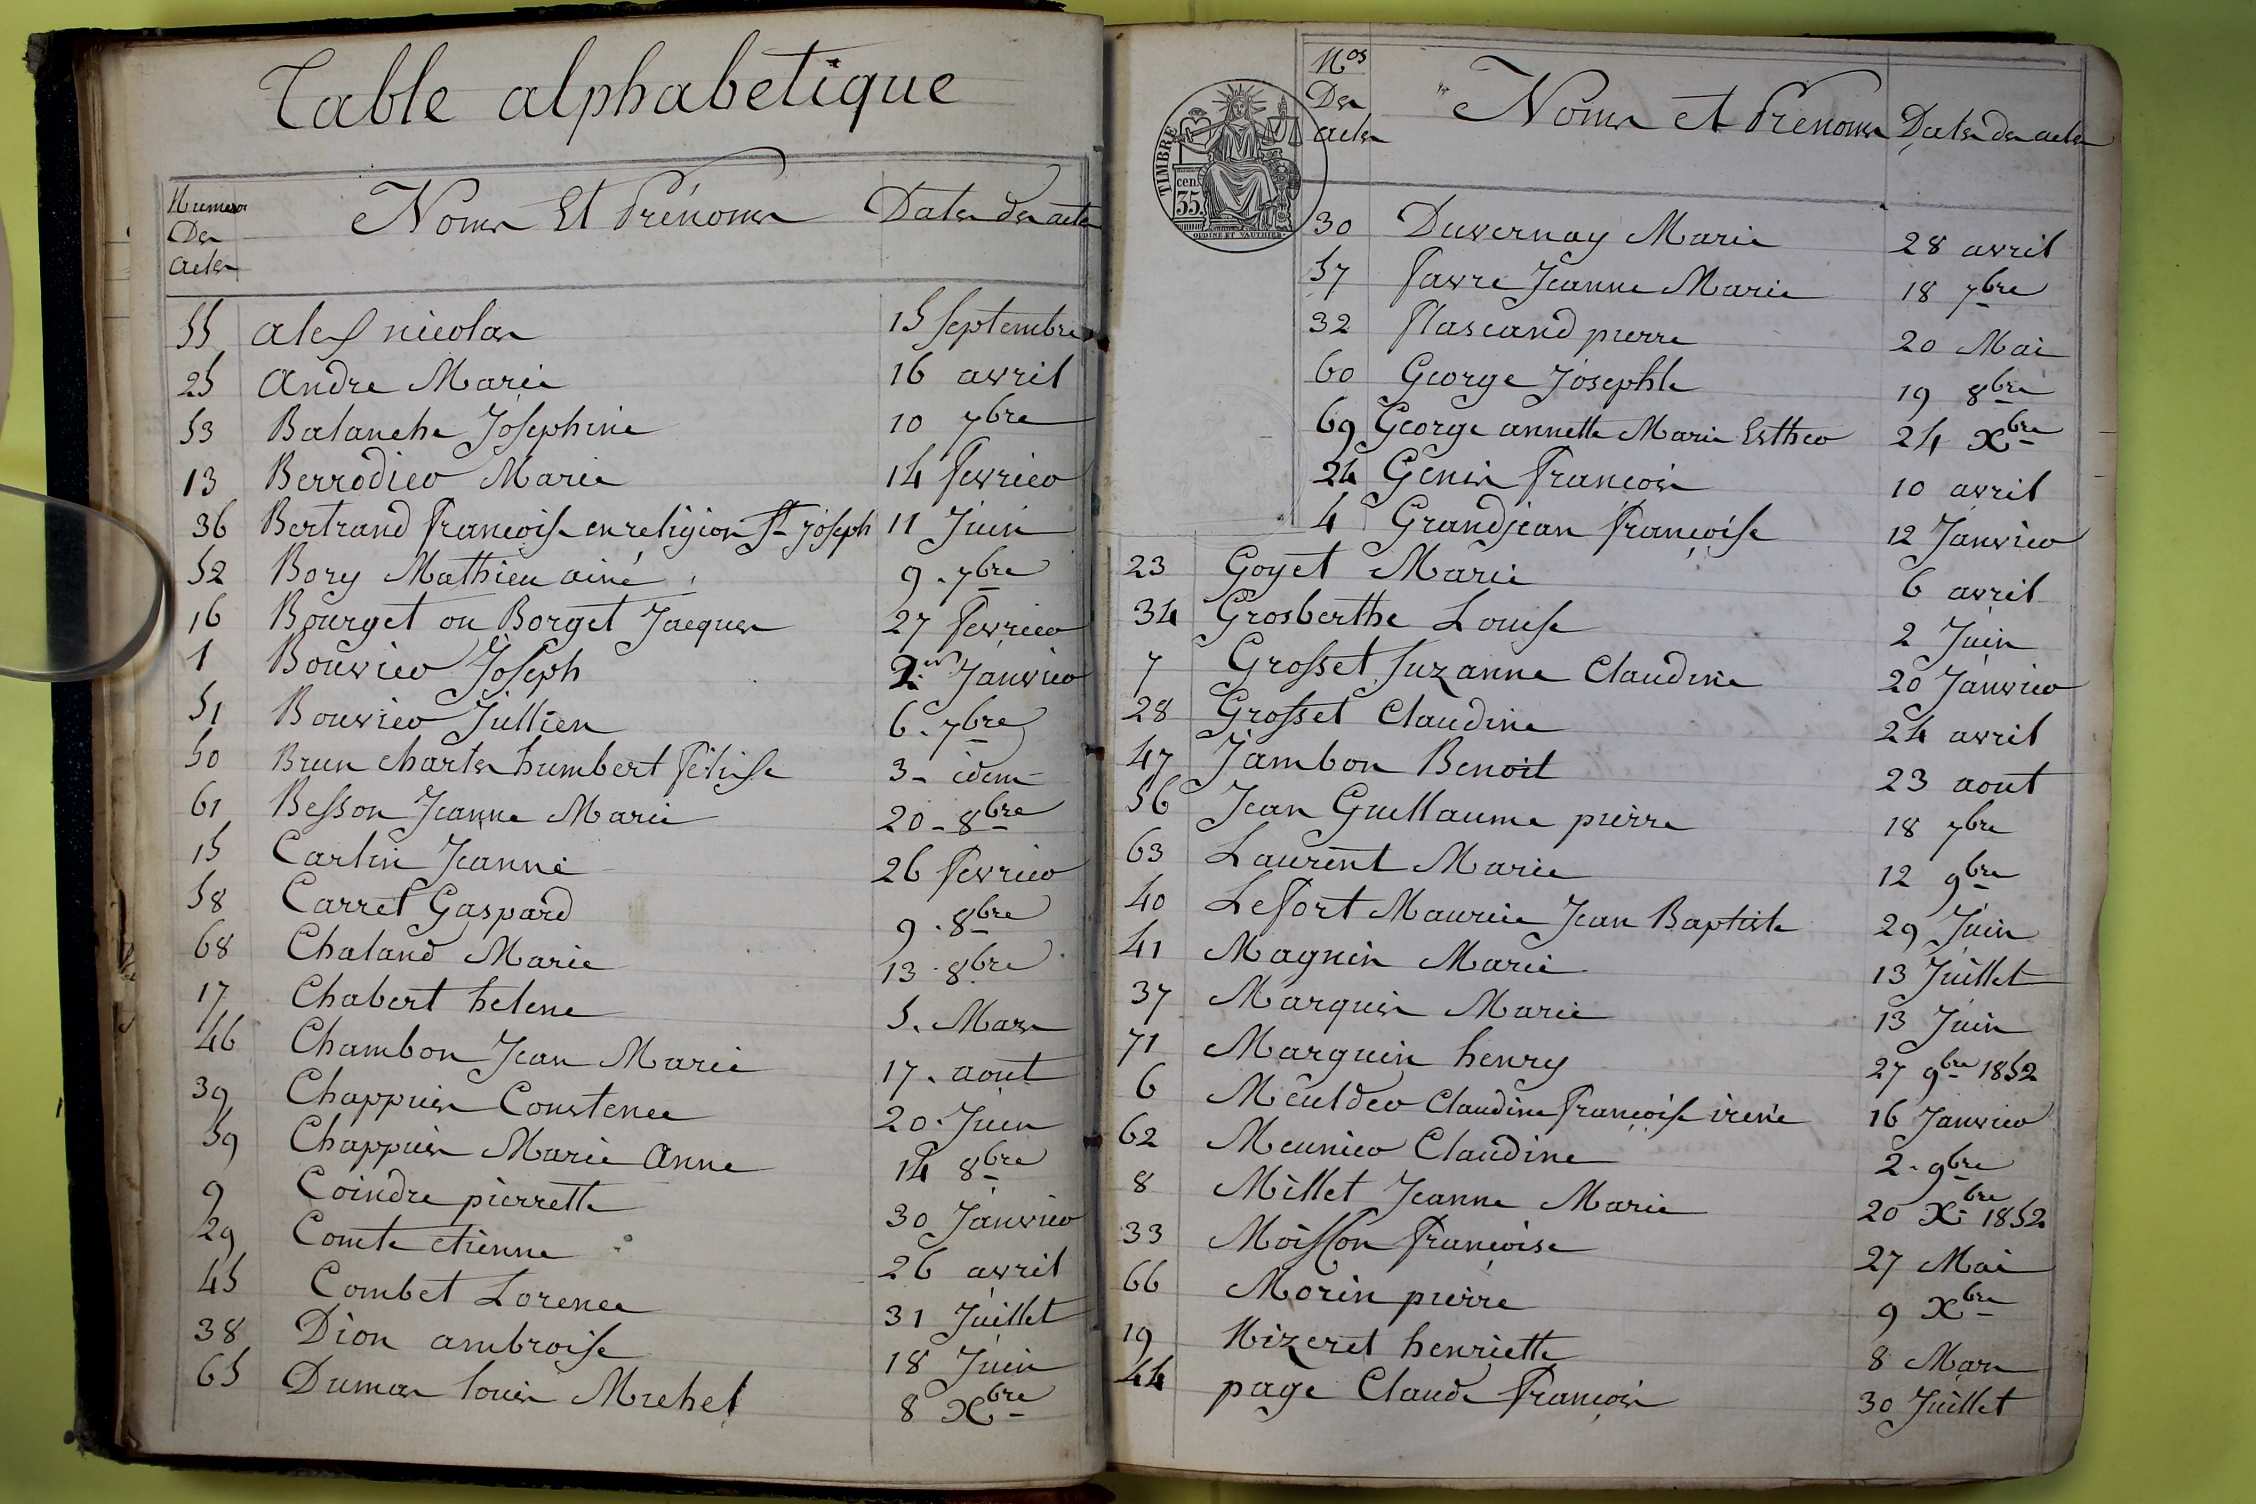 Table alphabetique
Numeros Des actes Noms Et Prénoms Dates des actes
55 alex nicolas 15 septembre
25 andre Marie 16 avril
53 Balanche Joséphine 10 7bre
13 Berrodier Marie 14 fevrier
36 Bertrand francoise en religion St joseph 11 Juin
52 Bory Mathieu ainé 9. 7bre
16 Bourget ou Borget Jacques 27 fevrier
1 Bouvier Joseph Janvier
51 Bouvier Jullien 6. 7bre
50 Brun charles humbert félise 3 - idem -
61 Besson Jeanne Marie 20 - 8bre
15 Carlin Jeanne 26 fevrier
58 Carret Gaspard 9. 8bre
68 Chaland Marie 13. 8bre
17 Chabert helene 5. Mars
46 Chambon Jean Marie 17. aout
39 Chappuis Constence 20. Juin
59 Chappuis Marie anne 14 8bre
9 Coindre pierrette 30 Janvier
29 Comte etienne 26 avril
45 Combet Lorence 31 Juillet
38 Dion ambroise 18 Juin
65 Dumas louis Michel 8 Xbre
TIMBRE
cen.
35.
OUDINE ET VAUTHIER
Nos Des actes Noms et Prénoms Dates des actes
30 Duvernay Marie 28 avril
57 favre Jeanne Marie 18 7bre
32 flascand pierre 20 Mai
60 George Josephte 19 8bre
69 George annette Marie Esther 24 Xbre
24 Genis francois 10 avril
4 Grandjean françoise 12 Janvier
23 Goyet Marie 6 avril
34 Grosberthe Louise 2 Juin
7 Grosset Suzanne Claudine 20 Janvier
28 Grosset Claudine 24 avril
47 Jambon Benoit 23 aout
56 Jean Guillaume pierre 18 7bre
63 Laurent Marie 12 9bre
40 Lefort Maurice Jean Baptiste 29 Juin
41 Magnin Marie 13 Juillet
37 Marquis Marie 13 Juin
71 Marguin henry 27 9bre 1852
6 Meulder Claudine françoise irene 16 Janvier
62 Meunier Claudine 2. 9bre
8 Millet Jeanne Marie 20 Xbre 1852
33 Moisson francoise 27 Mai
66 Morin pierre 9 Xbre
19 Nizeret henriette 8 Mars
44 page Claude françois 30 Juillet